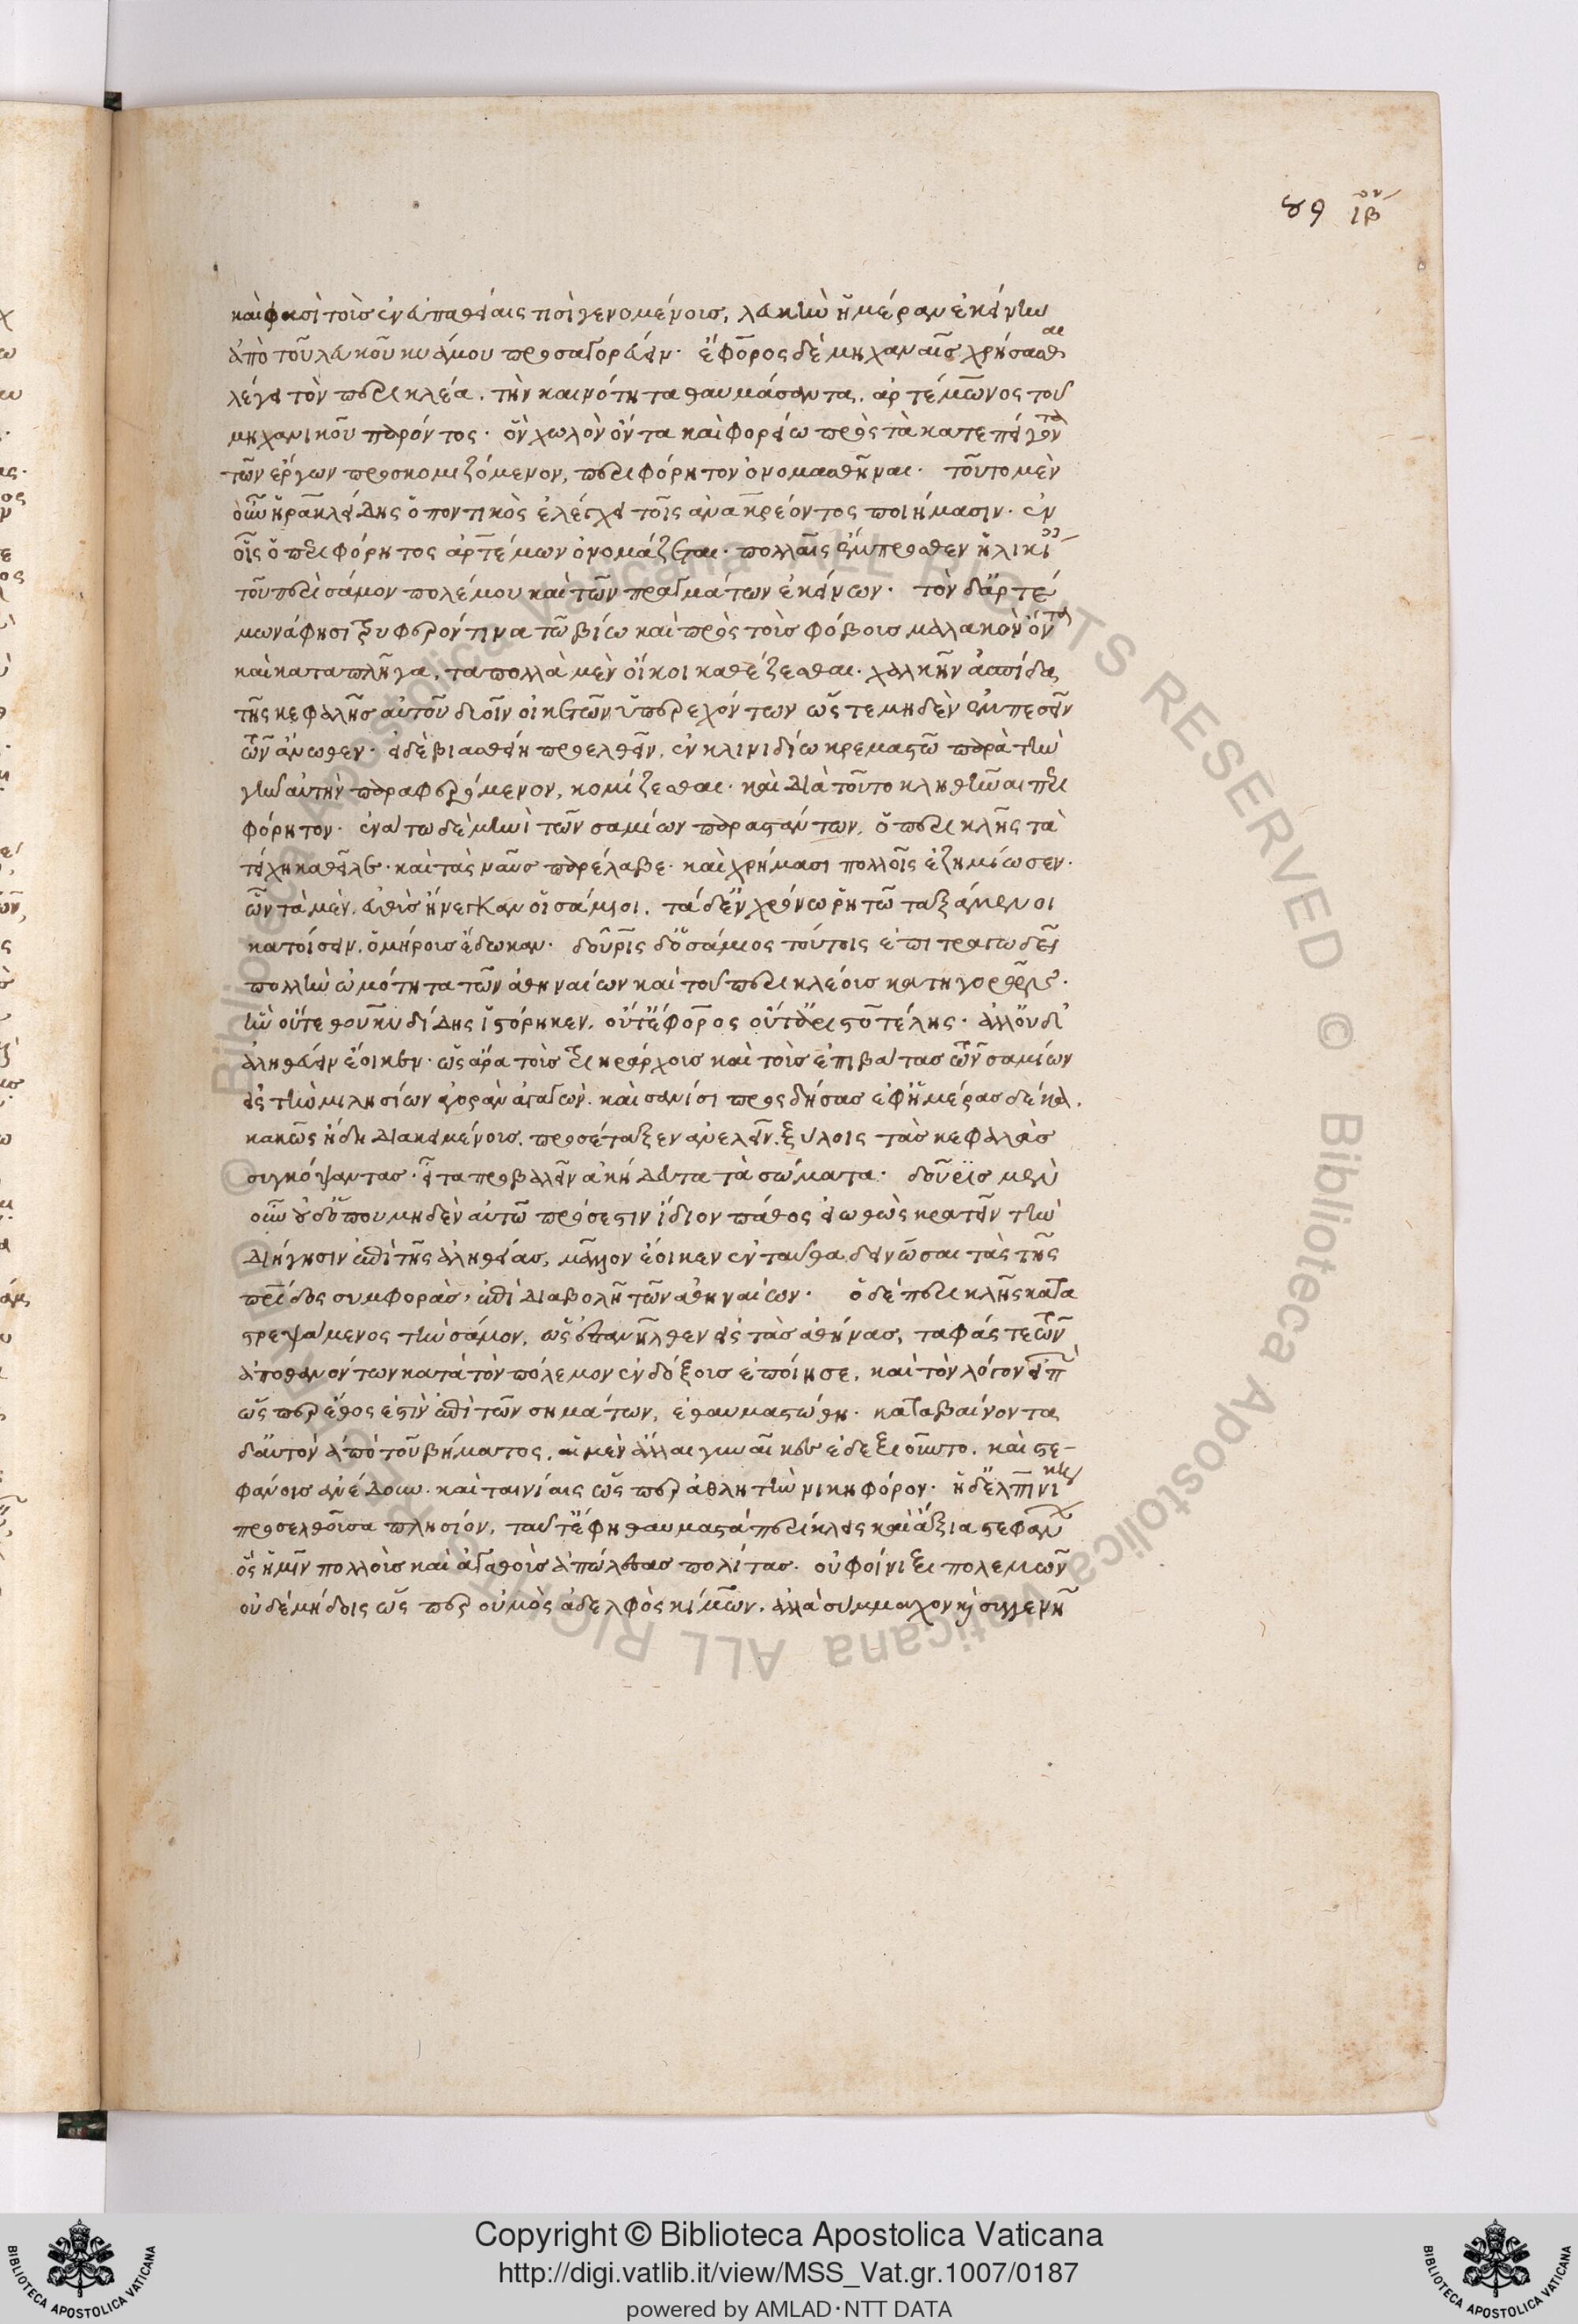 89 ιβον
καί φησι τοῖς ἐν εὐπαθείαις τισὶ γενομένοις, λευκὴν ἡμέραν ἐκείνην
ἀπὸ τοῦ λευκοῦ κυάμου προσαγορεύειν· ἔφορος δὲ μηχαναῖς χρήσασθαι
λέγει τὸν περικλέα. τὴν καινότητα θαυμάσαντα. ἀρτέμωνος τοῦ
μηχανικοῦ παρόντος· ὃν χωλὸν ὄντα καὶ φορείω πρὸς τὰ κατεπείγοντα
τῶν ἔργων προσκομιζόμενον, περιφόρητον ὀνομασθῆναι· τοῦτο μὲν
οὖν ἡρακλείδης ὁ ποντικὸς ἐλέγχει τοῖς ἀνακρέοντος ποιήμασιν· ἐν
οἷς ὁ περιφόρητος ἀρτέμων ὀνομάζεται· πολλαῖς ἔμπροσθεν ἡλικίαις
τοῦ περὶ σάμον πολέμου καὶ τῶν πραγμάτων ἐκείνων· τὸν δ' ἀρτέ
μωνά φησι τρυφερόν τινα τῶ βίω καὶ πρὸς τοὺς φόβους μαλακὸν ὄντα
καὶ καταπλῆγα, τα πολλὰ μὲν οἴκοι καθέζεσθαι. χαλκῆν ἀσπίδα
τῆς κεφαλῆς αὐτοῦ δυοῖν οἰκετῶν ὑπερεχόντων ὥστε μηδὲν ἐμπεσεῖν
τῶν ἄνωθεν· εἰ δὲ βιασθείη προελθεῖν, ἐν κλινιδίω κρεμαστῶ παρὰ τὴν
γῆν αὐτὴν παραφερόμενον, κομίζεσθαι· καὶ διὰ τοῦτο κληθῆναι περι
φόρητον· ἐνάτω δὲ μηνὶ τῶν σαμίων παραστάντων, ὁ περικλῆς τὰ
τείχη καθεῖλε· καὶ τὰς ναῦς παρέλαβε· καὶ χρήμασι πολλοῖς ἐζημίωσεν·
ὧν τὰ μὲν, εὐθὺς ἤνεγκαν οἱ σάμιοι. τὰ δ' ἐν χρόνω ῥητῶ ταξάμενοι
κατοίσειν, ὁμήρους ἔδωκαν· δοῦρις δ' ὁ σάμιος τούτοις ἐπιτραγωδεῖ
πολλὴν ὠμότητα τῶν ἀθηναίων καὶ τοῦ περικλέους κατηγορῶν·
ἣν οὔτε θουκυδίδης ἱστόρηκεν, οὔτ' ἔφορος οὔτ' ἀριστοτέλης· ἀλλ' οὐδ'
ἀληθεύειν ἔοικεν· ὡς ἄρα τοὺς τριηράρχους καὶ τοὺς ἐπιβάτας τῶν σαμίων
εἰς τὴν μιλησίων ἀγορὰν ἀγαγὼν. καὶ σανίσι προσδήσας ἐφ' ἡμέρας δέκα.
κακῶς ἤδη διακειμένους, προσέταξεν ἀνελεῖν. ξύλοις τὰς κεφαλὰς
συγκόψαντας· εἶτα προβαλεῖν ἀκήδευτα τὰ σώματα· δοῦρις μὲν
οὖν οὐδ' ὅπου μηδὲν αὐτῶ πρόσεστιν ἴδιον πάθος εἰωθὼς κρατεῖν τὴν
διήγησιν ἐπὶ τῆς ἀληθείας, μᾶλλον ἔοικεν ἐνταῦθα δεινῶσαι τὰς τῆς
πατρίδος συμφορὰς, ἐπὶ διαβολῆ τῶν ἀθηναίων· ὁ δὲ περικλῆς κατα
στρεψάμενος τὴν σάμον, ὡς ἐπανῆλθεν εἰς τὰς ἀθήνας, ταφάς τε τῶν
ἀποθανόντων κατὰ τὸν πόλεμον ἐνδόξους ἐποίησε, καὶ τὸν λόγον εἰπὼν
ὥσπερ ἔθος ἐστὶν ἐπὶ τῶν σημάτων, ἐθαυμαστώθη· καταβαίνοντα
δ' αὐτὸν ἀπὸ τοῦ βήματος, αἱ μὲν ἄλλαι γυναῖκες ἐδεξιοῦντο. καὶ στε-
φάνους ἀνέδουν. καὶ ταινίαις ὥσπερ ἀθλητὴν νικηφόρον· ἡ δ' ἐλπινίκη
προσελθοῦσα πλησίον, ταῦτ' ἔφη θαυμαστὰ περίκλεις καὶ ἄξια στεφάνων
ὃς ἡμῖν πολλοὺς καὶ ἀγαθοὺς ἀπώλεσας πολίτας. οὐ φοίνιξι πολεμῶν
οὐδὲ μήδοις ὥσπερ οὑμὸς ἀδελφὸς κίμων. ἀλλὰ σύμμαχον καὶ συγγενῆ
© Biblioteca Apostolica Vaticana ALL RIGHTS RESERVED © Biblioteca Apostolica Vaticana ALL RIGHTS RESERVED
Copyright © Biblioteca Apostolica Vaticana
http://digi.vatlib.it/view/MSS_Vat.gr.1007/0187
powered by AMLAD·NTT DATA
BIBLIOTECA APOSTOLICA VATICANA
BIBLIOTECA APOSTOLICA VATICANA